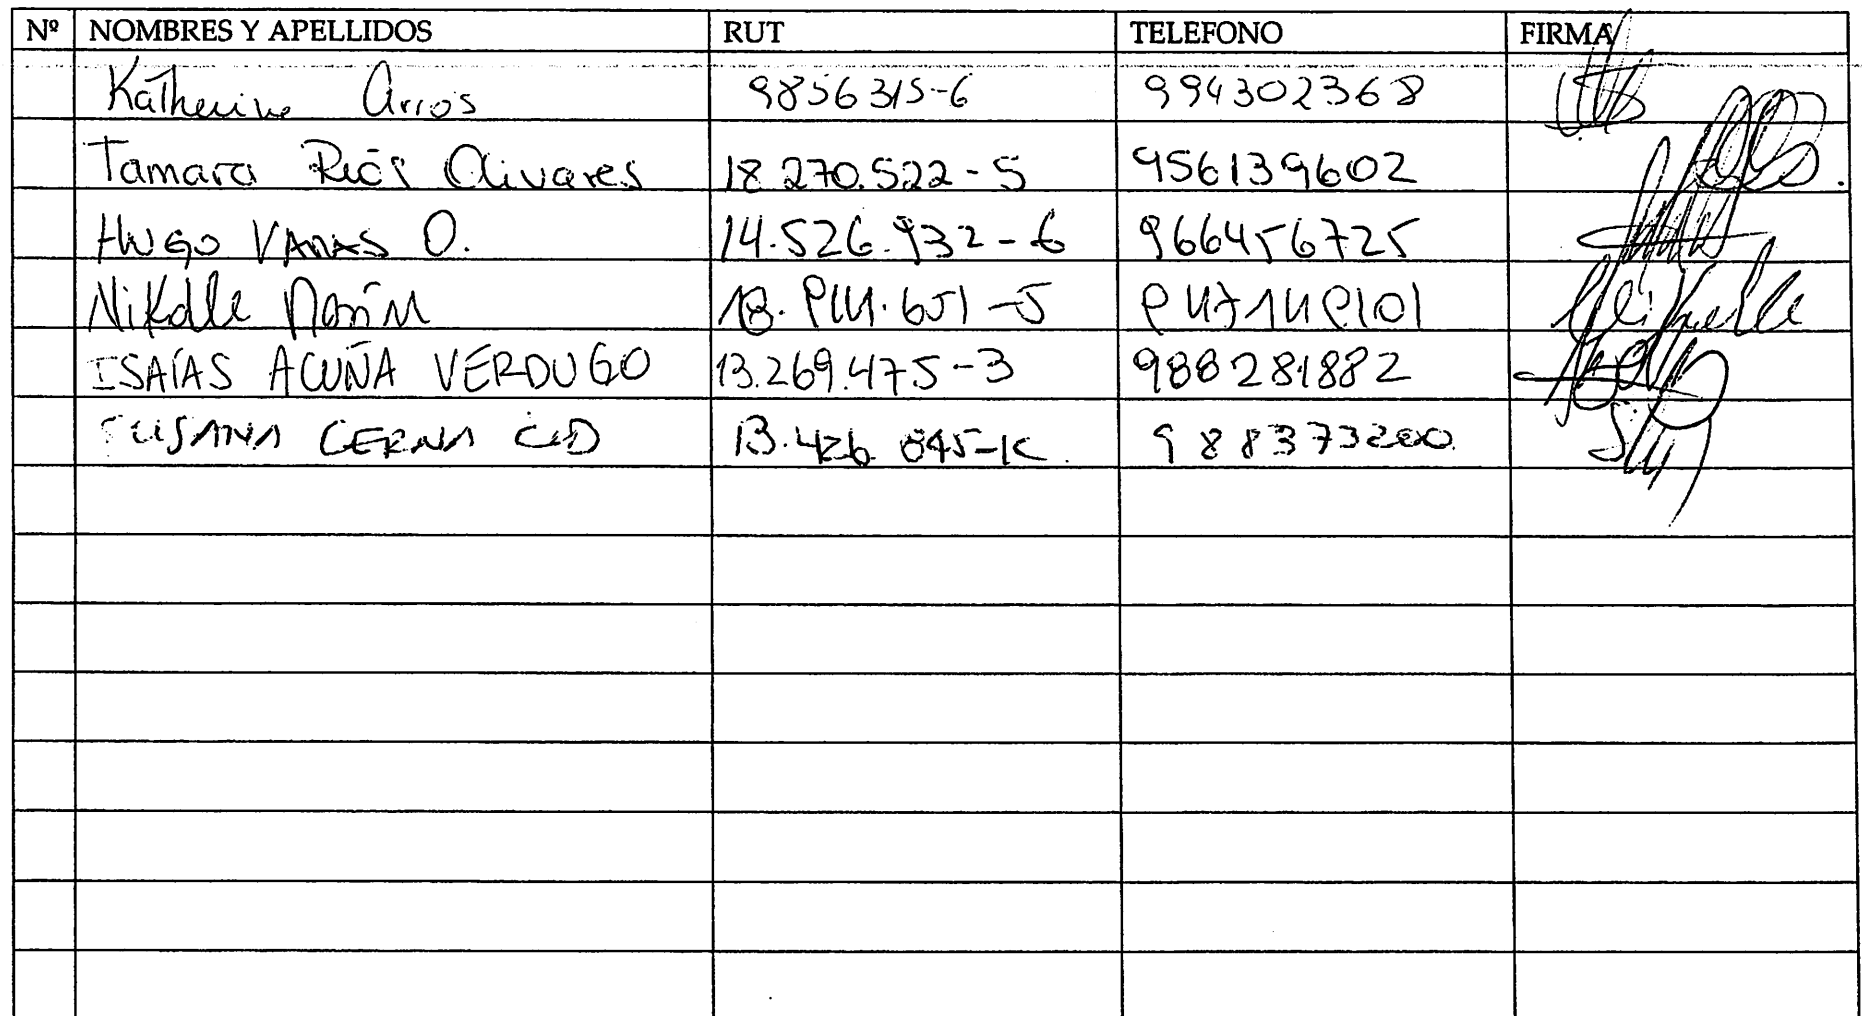 Nº NOMBRES Y APELLIDOS RUT TELEFONO FIRMA
Katherine Arros 9856315-6 994302368
Tamara Ríos Olivares 18.270.522-5 956139602
HUGO VARAS O. 14.526.932-6 966456725
Nikolle 18. 651-5
ISAÍAS ACUÑA VERDUGO 13.269.475-3 988281882
SUSANA CERNA CID 13.426.045-K 988373200